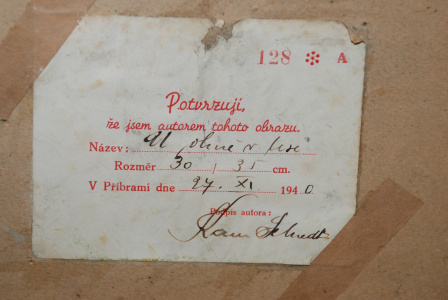 128 ❇ A
Potvrzuji,
že jsem autorem tohoto obrazu.
Název: U ohně v lese
Rozměr 30 / 35 cm.
V Příbrami dne 27. XI. 1940
Podpis autora: